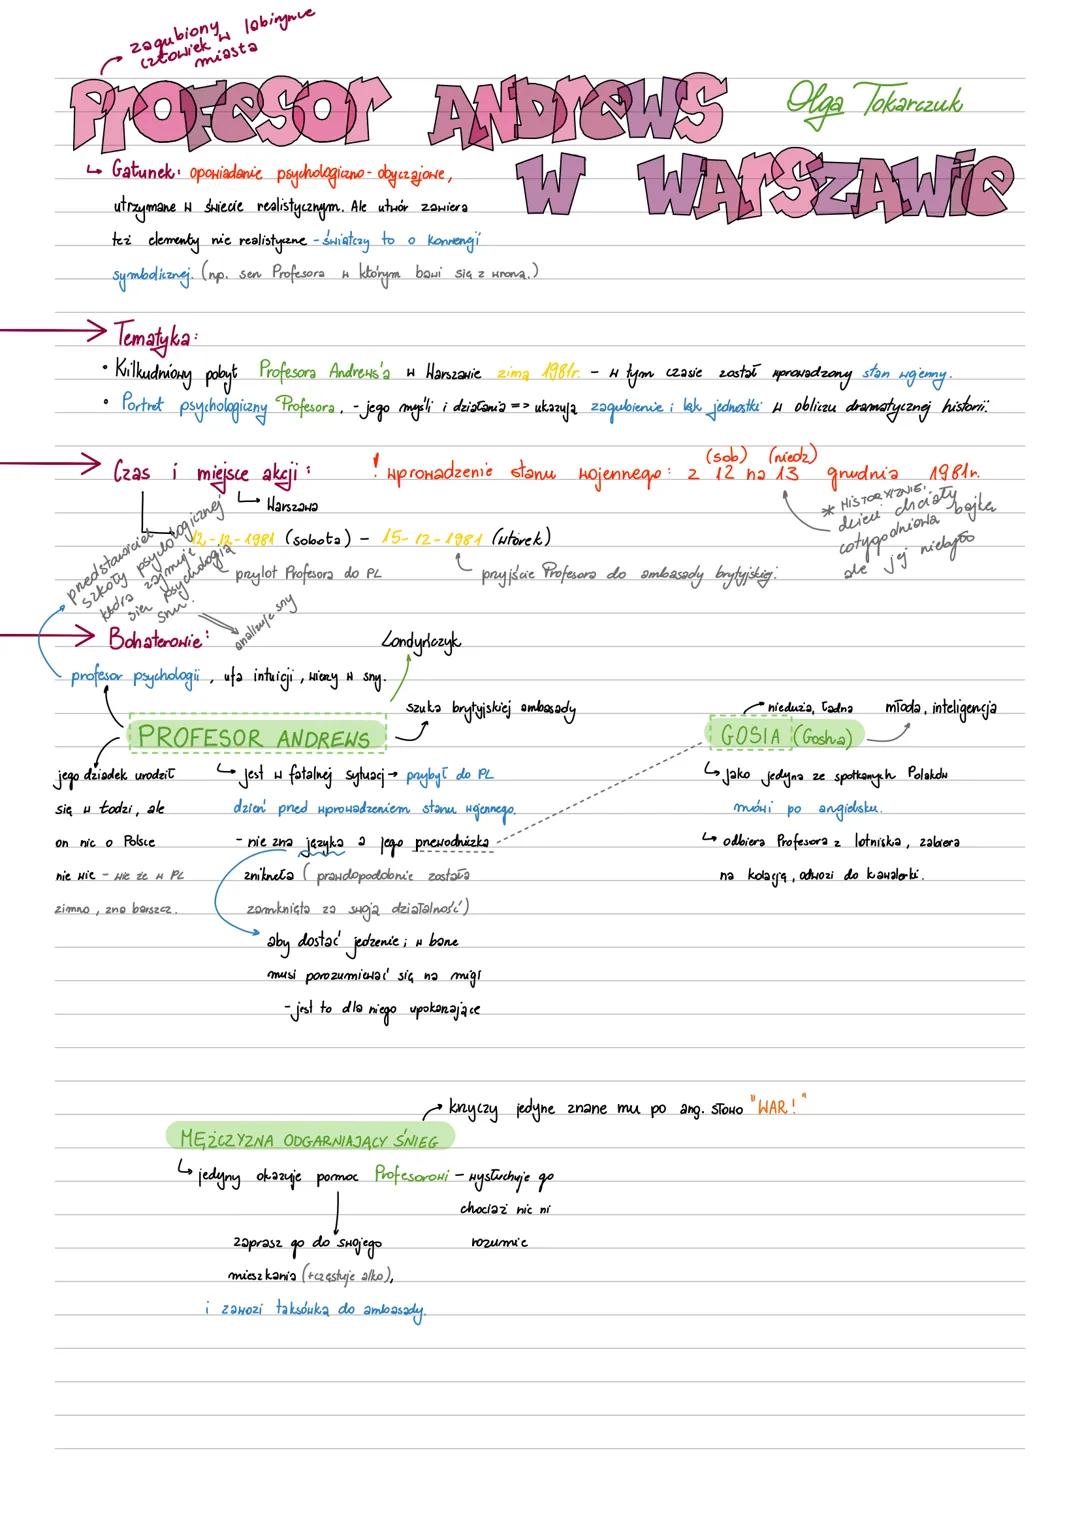 zagubiony
człowiek w labirynce
miasta
PROFESOR ANDREWS
W WARSZAWIE
Olga Tokarczuk
↳ Gatunek: opowiadanie psychologiczno-obyczajowe,
utrzymane w świecie realistycznym. Ale utwór zawiera
też elementy nie realistyczne - świadczy to o konwencji
symbolicznej. (np. sen Profesora w którym bawi się z wroną.)
→ Tematyka:
• Kilkudniowy pobyt Profesora Andrews'a w Warszawie zimą 1981r. - w tym czasie został wprowadzony stan wojenny.
• Portret psychologiczny Profesora, - jego myśli i działania => ukazują zagubienie i lęk jednostki w obliczu dramatycznej historii.
→ Czas i miejsce akcji:
↳ Warszawa
! wprowadzenie stanu wojennego: z 12 na 13 grudnia 1981r.
(sob) (niedz)
* HISTORYCZNIE:
dzieci chciały
cotygodniową bajkę
ale jej niebyło
12-12-1981 (sobota) - 15-12-1981 (wtorek)
przylot Profesora do PL
przyjście Profesora do ambasady brytyjskiej.
przedstawiciel
szkoły psychologicznej
która zajmuje
się psychologią
snu.
analizuje sny
→ Bohaterowie:
profesor psychologii, ufa intuicji, wierzy w sny.
Londyńczyk
szuka brytyjskiej ambasady
PROFESOR ANDREWS
jego dziadek urodził
się w Łodzi, ale
on nic o Polsce
nie wie - wie że w PL
zimno, zna barszcz.
↳ jest w fatalnej sytuacj → przybył do PL
dzień przed wprowadzeniem stanu wojennego.
- nie zna języka a jego przewodniczka
zniknęła (prawdopodobnie została
zamknięta za swoją działalność)
aby dostać jedzenie; w barze
musi porozumiewać się na migi
- jest to dla niego upokarzające
nieduża, ładna
młoda, inteligencja
GOSIA (Gosh-a)
↳ jako jedyna ze spotkanych Polaków
mówi po angielsku.
↳ odbiera Profesora z lotniska, zabiera
na kolację, odwozi do kawalerki.
krzyczy jedyne znane mu po ang. słowo "WAR!"
MĘŻCZYZNA ODGARNIAJĄCY ŚNIEG
↳ jedyny okazuje pomoc Profesorowi - wysłuchuje go
chociaż nic ni
rozumie
zaprasz go do swojego
mieszkania (+częstuje alko),
i zawozi taksówką do ambasady.